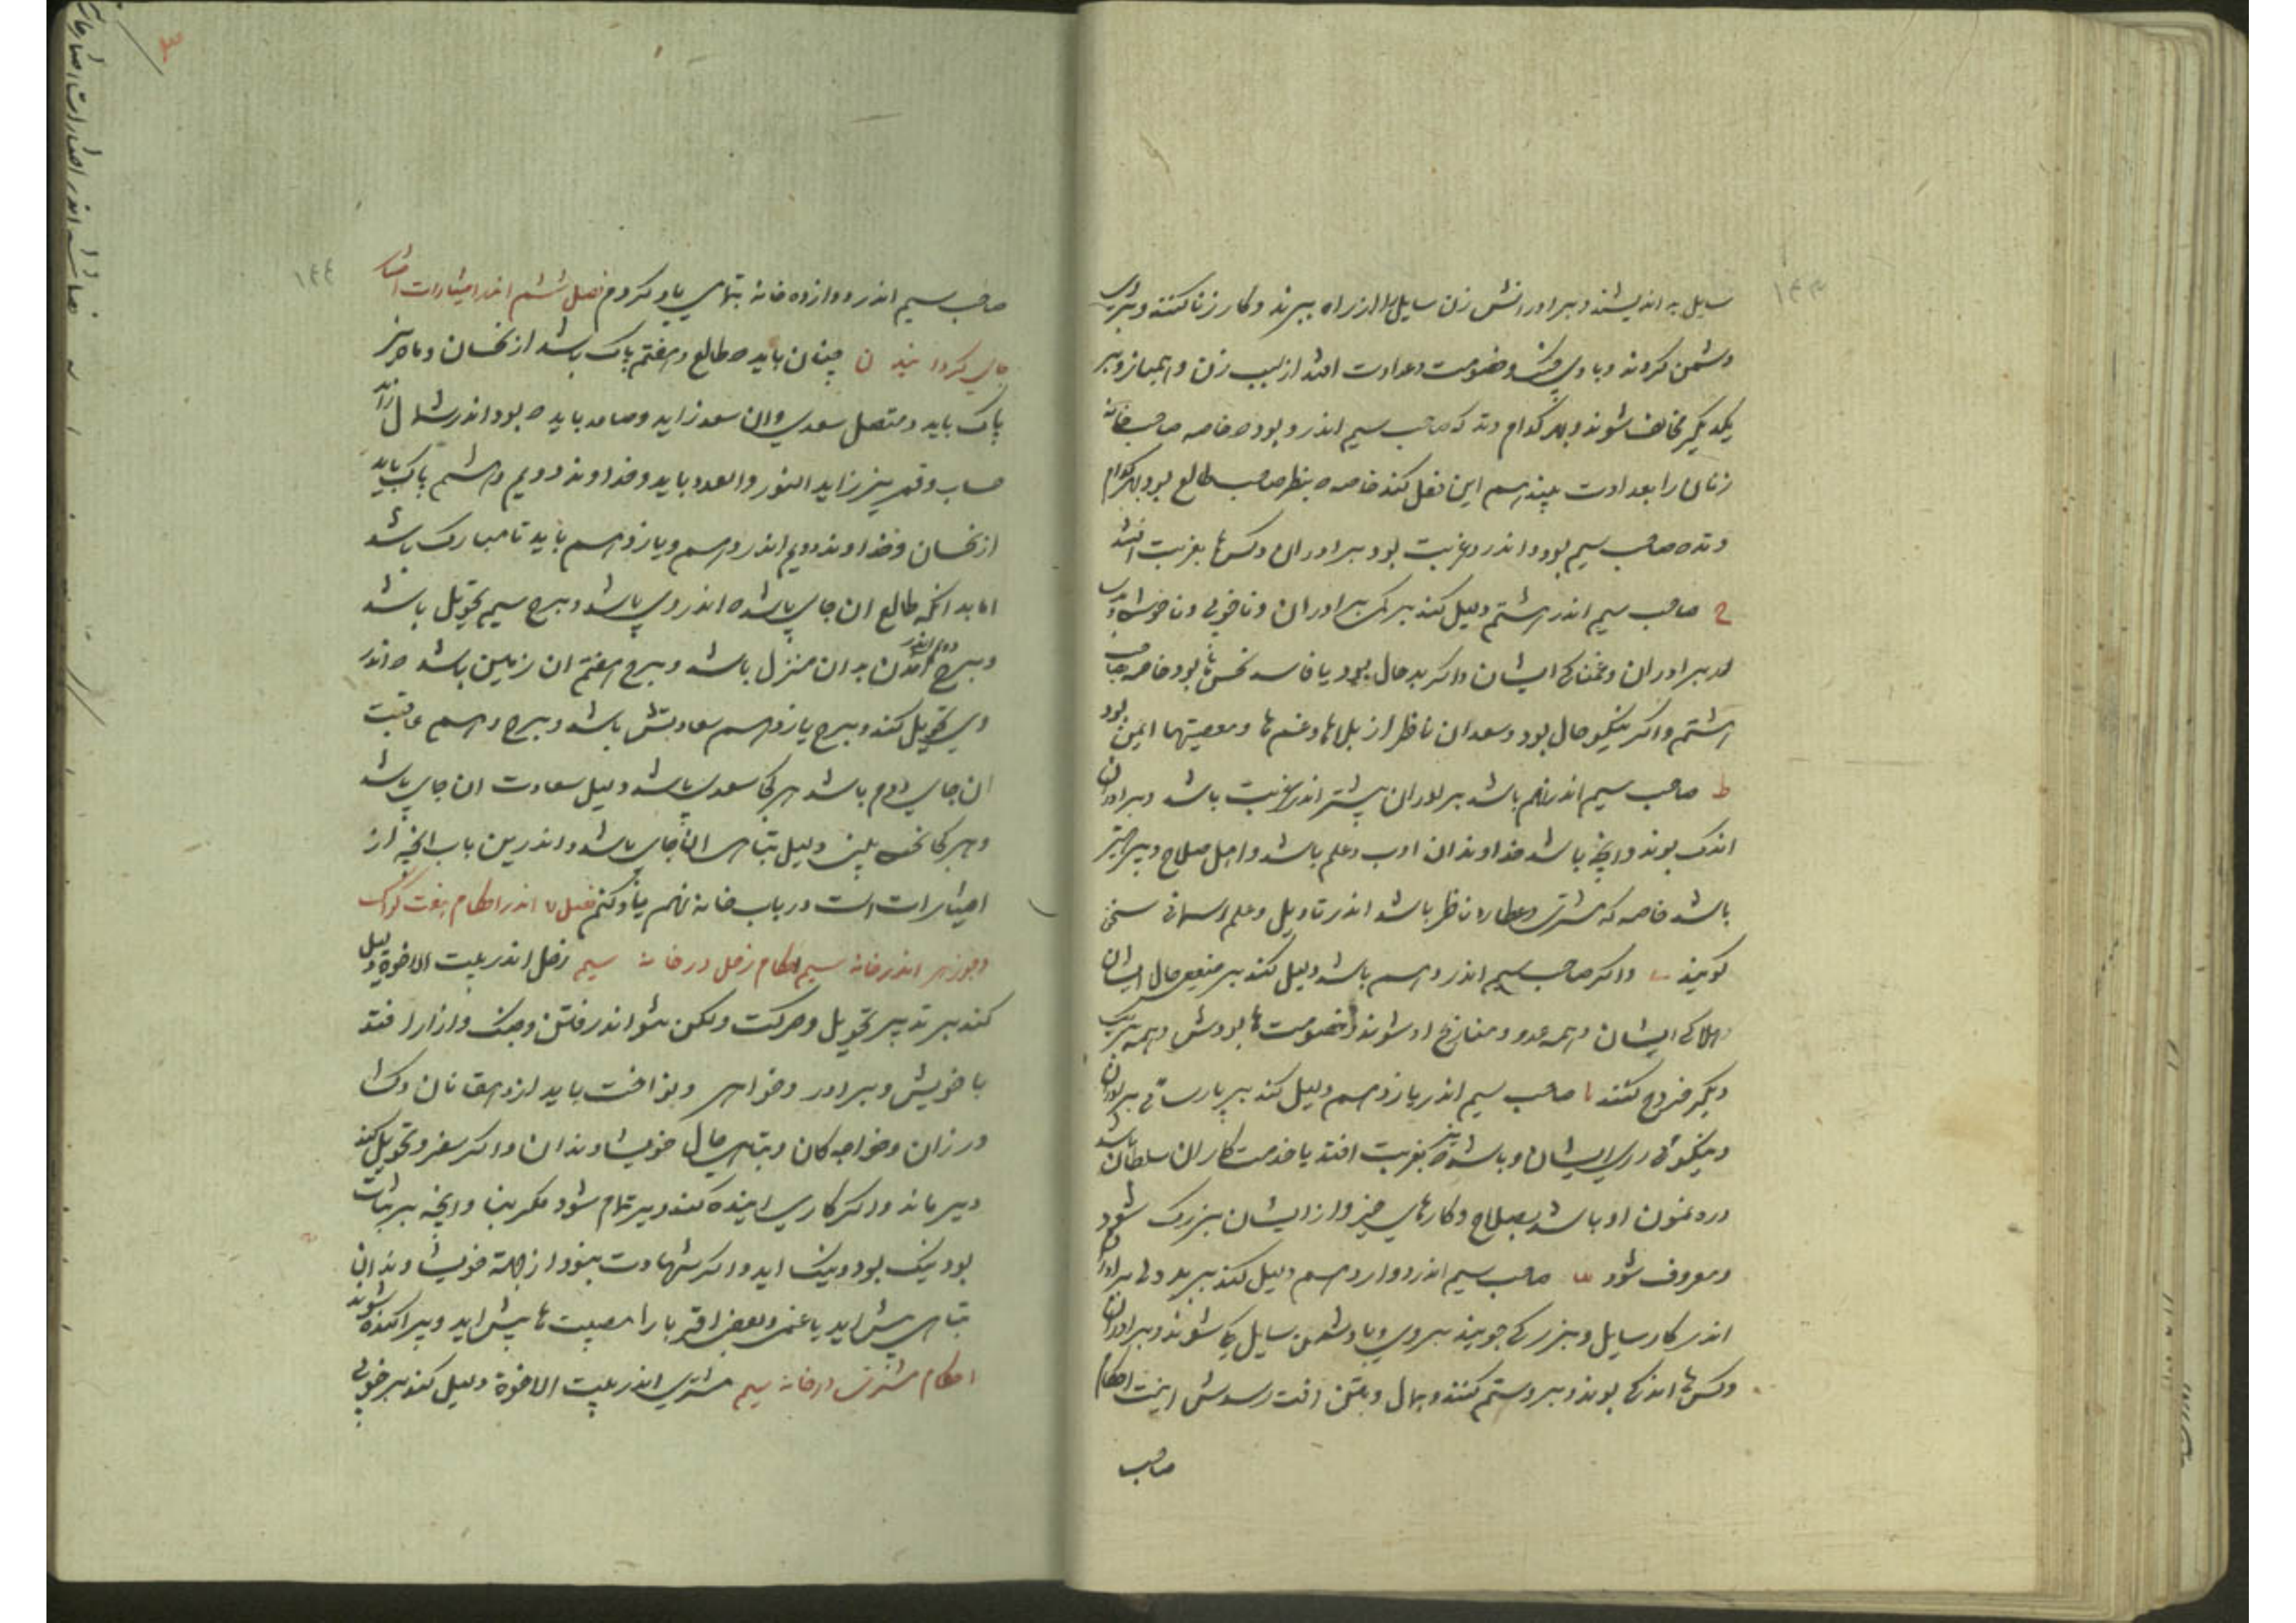 ۱۴۳
سایل بد اندیشند و برادرانش زن سایل را از راه ببرند و کار زنا کنند و بروی
دشمن کردند و با وی جنک و خصومت و عداوت افتد از سبب زن و انبازو بر
یکدیکر مخالف شوند و بهر کدام وتد که صاحب سیم اندرو بود خاصه صاحب خانه
زنانی را بعداوت این فعل کنند خاصه ه بنظر صاحب طالع بود بهر کدام
وتد ه صاحب سیم بود و اندر غربت بود برادران و کس ها بغربت افتند
ح صاحب سیم اندر هشتم دلیل کند بمرک برادران و ناخوبی و ناخوشی
برادران و غمناکی ایشان و اکر بد حال بود یا فاسد نحس بود خاصه صاحب
هشتم و اکر نیکو حال بود و سعدان ناظر از بلاها و غمها و مصیبتها ایمن بود
ط صاحب سیم اندر نهم باشد برادران پیشتر اندر غربت باشد و برادران
اندک بوند و انچه باشد خداوندان ادب و علم باشد و اهل صلاح و پرهیز
باشد خاصه که مشتری و عطارد ناظر باشد اندر تاویل و علم اسمانی سخن
کویند ی و اکر صاحب سیم اندر دهم باشد دلیل کند بر ضعیفی حال ایشان
و هلاکی ایشان و همه عدو و منازع او شوند و خصومت ها بودش و همه بر یک
دیکر خروج کنند یا صاحب سیم اندر یازدهم دلیل کند بر پارسائی برادران
و نیکوئی رای ایشان و باشد نیز بغربت افتد یا خدمت کاران سلطان باشد
و رهنمون او باشد بصلاح و کارهای خیر و از ایشان بزرک شود
و معروف شود یب صاحب سیم اندر دوازدهم دلیل کند بر بد دلی برادران
اندر کار سایل و بزرکی جویند بروی و با دشمن سایل یکی شوند و برادران
و کس ها اندکی بوند و برو ستم کنند و بمال و بتن افت رسدش اینت احکام
صاحب
۱۴۴
صاحب سیم اندر دوازده خانه بتمامی یاد کردم فصل ششم اندر اختیارات
جای کردانیدن چنان باید ه طالع و هفتم پاک باشد از نحسان و ماه نیز
پاک باید و متصل سعدی و ان سعد زاید و صاعد باید ه بود اندر شمال زاید
حساب و قمر نیز زاید النور و العدد باید و خداوند دویم و هشتم پاک باید
از نحسان و خداوند دویم اندر دهم و یازدهم باید تا مبارک باشد
اما بدانکه طالع ان جای باشد ه اندر وی باشد و برج سیم تحویل باشد
و برج دوم اندر امدن بدان منزل باشد و برج هفتم ان زمین باشد ه اندر
وی تحویل کند و برج یازدهم سعادتش باشد و برج دهم عاقبت
ان جای دوم باشد هر کجا سعدی باشد دلیل سعادت ان جای باشد
و هر کجا نحس بینی دلیل تباهی ان جای باشد و اندرین باب انچه از
اختیارات است در باب خانه نهم یاد کنم فصل ۷ اندر احکام هفت کواکب
و جوزهر اندر خانه سیم احکام زحل در خانه سیم زحل اندر بیت الاخوة دلیل
کند بر تدبیر تحویل و حرکت و لکن اندر فتن و جنک و ازار افتد
با خویش و برادر و خواهر و نواخت یابد از دهقانان و
ورزان و خواجه کان و تباهی حال خویشاوندان و اکر سفر و تحویل کند
دیر ماند و اکر کاری اینده کند دیر تمام شود مکر بنا و انچه بر ثبات
بود نیک بود و نیک اید و اکر شهادت بنود از جملة خویشاوندان
تباهی پیش اید یا غمی و بعضی اقربا را مصیبت ها پیش اید و پراکنده شوند
احکام مشتری در خانه سیم مشتری اندر بیت الاخوة دلیل کند بر خوبی